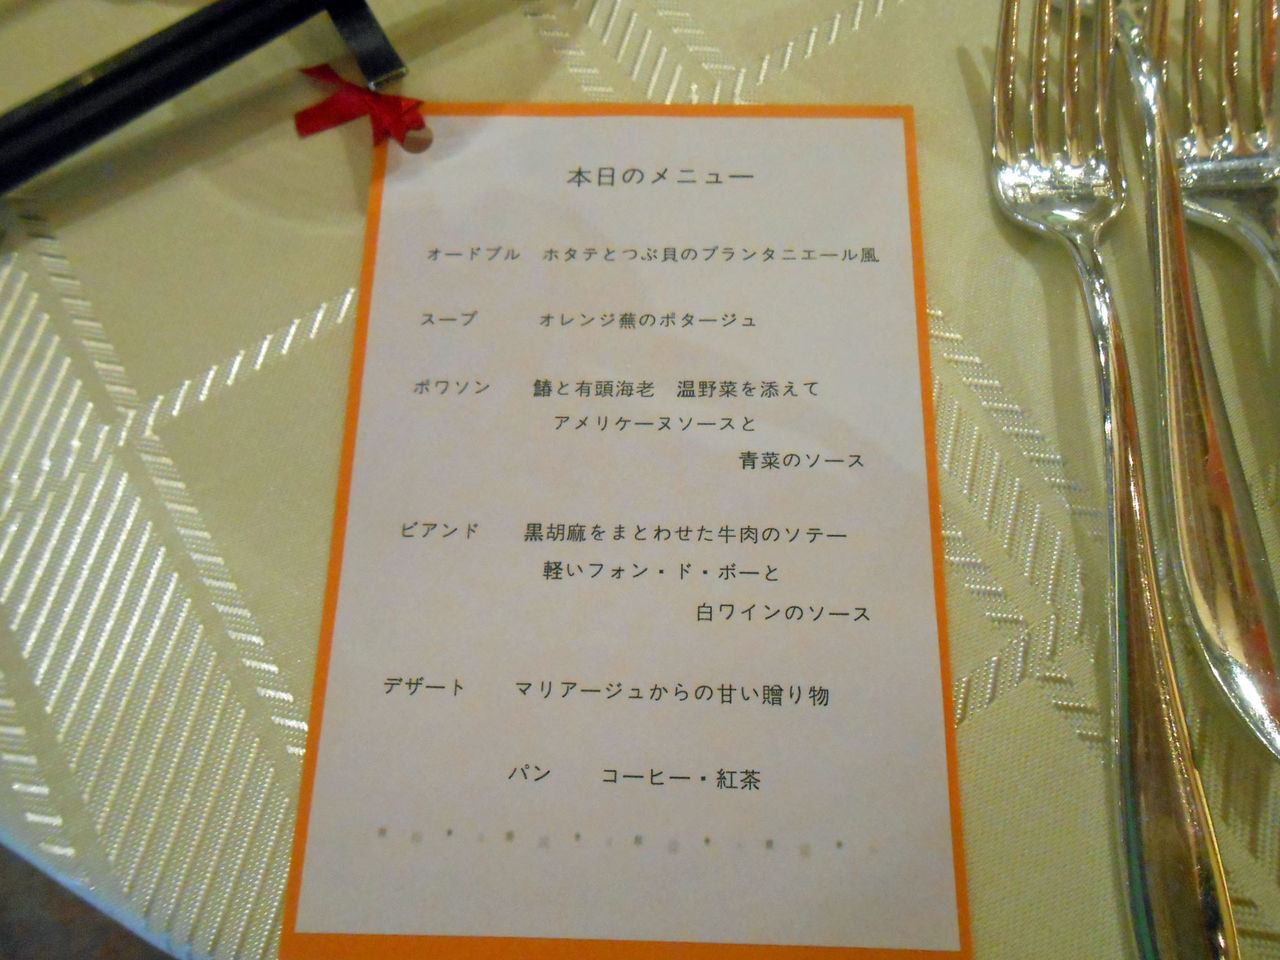 本日のメニュー
オードブル ホタテとつぶ貝のプランタニエール風
スープ オレンジ蕪のポタージュ
ポワソン 鰆と有頭海老 温野菜を添えて
アメリケーヌソースと
青菜のソース
ビアンド 黒胡麻をまとわせた牛肉のソテー
軽いフォン・ド・ボーと
白ワインのソース
デザート マリアージュからの甘い贈り物
パン コーヒー・紅茶